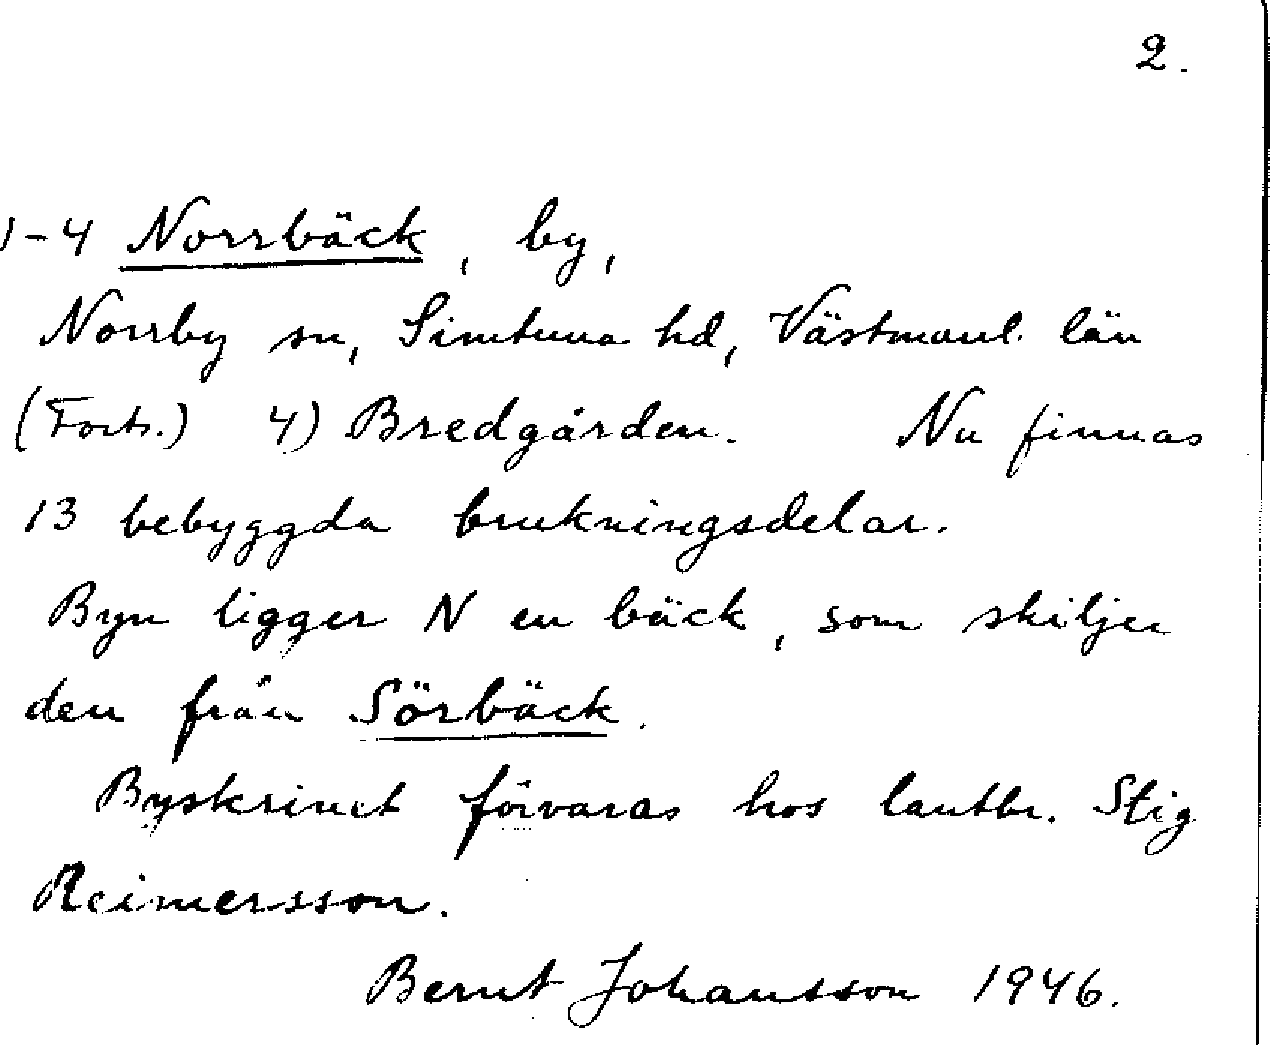 2.
1-4 Norrbäck, by,
Norrby sn, Simtuna hd, Västmanl. län
(Forts.) 4) Bredgården. Nu finnas
13 bebyggda brukningsdelar.
Byn ligger N en bäck, som skiljer
den från Sörbäck.
Byskrinet förvaras hos lantbr. Stig
Reimersson.
Bernt Johansson 1946.